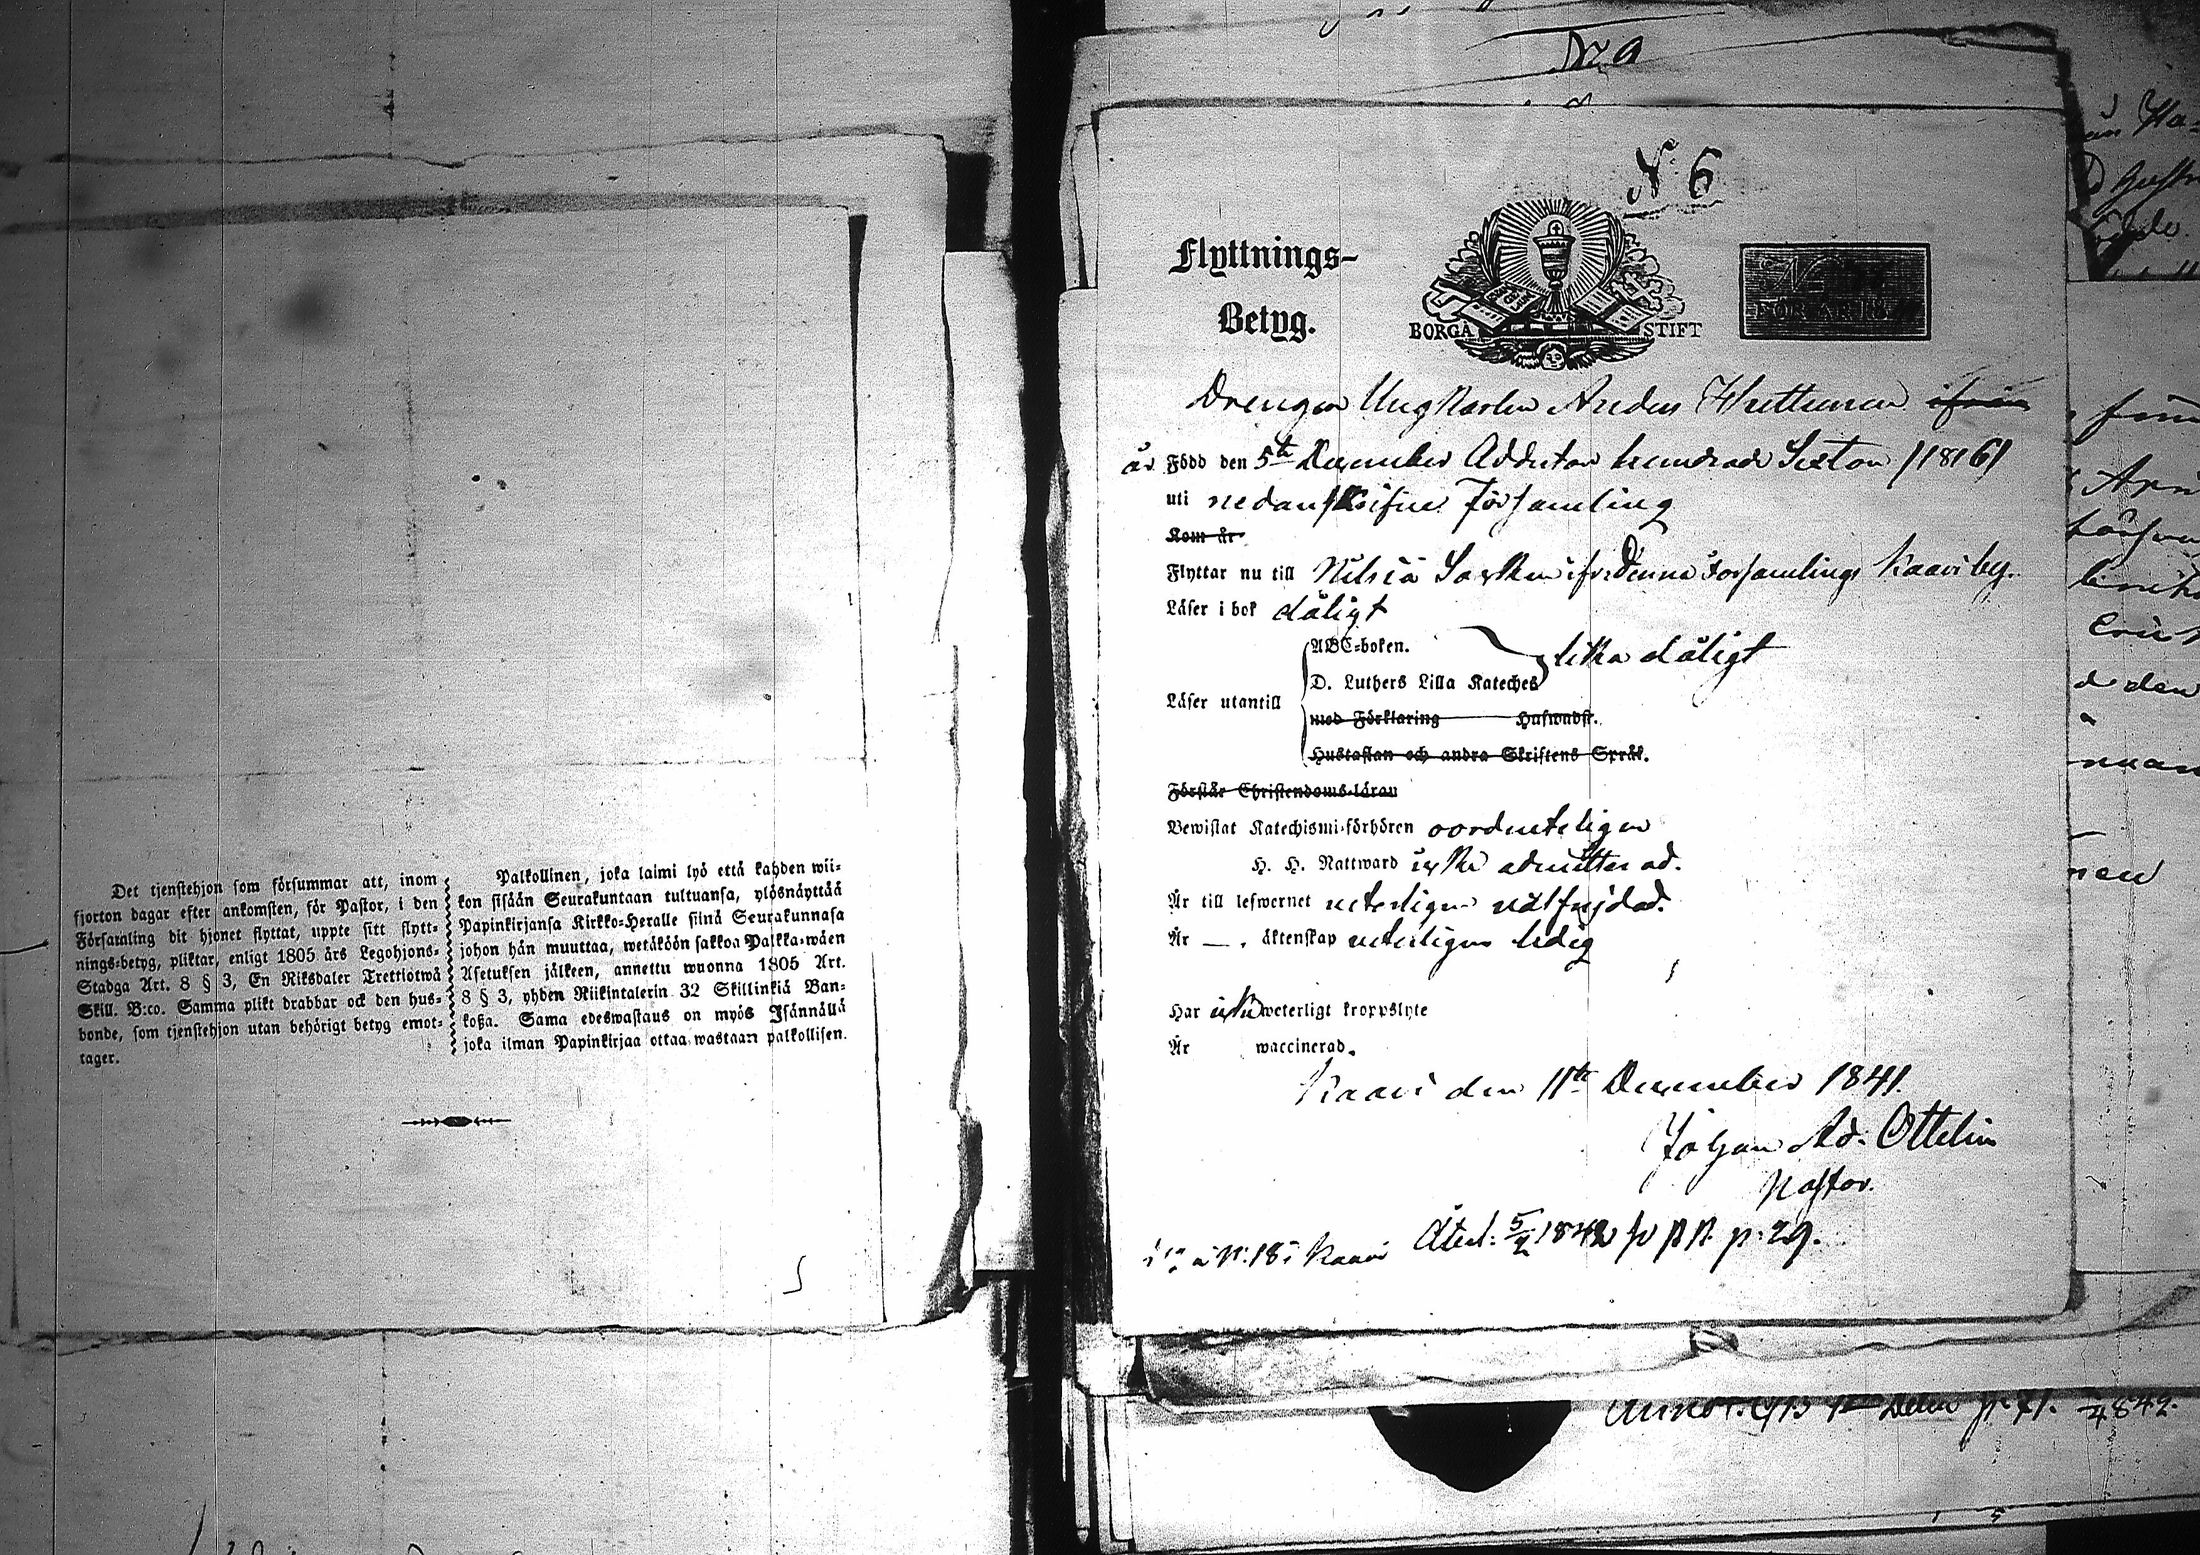 Det tjenstehjon som försummar att, inom
fjorton dagar efter ankomsten, för Pastor, i den
Församling dit hjonet flyttat, uppte sitt flytt-
nings-betyg, pliktar, enligt 1805 års Legohjons-
Stadga Art. 8 § 3, En Riksdaler Trettiotwå
Skill. B:co. Samma plikt drabbar ock den hus-
bonde, som tjenstehjon utan behörigt betyg emot-
tager.
Palkollinen, joka laimi lyö että kahden wii-
kon sisään Seurakuntaan tultuansa, ylösnäyttää
Papinkirjansa Kirkko-Heralle siinä Seurakunnasa
johon hän muuttaa, wetäköön sakkoa Palkka-wäen
Asetuksen jälkeen, annettu wuonna 1805 Art.
8 § 3, yhden Riikintalerin 32 Skillinkiä Ban-
koßa. Sama edeswastaus on myös Isännällä
joka ilman Papinkirjaa ottaa wastaan palkollisen.
No 9
N: 6
Flyttnings-
Betyg.
BORGÅ STIFT
FÖR ÅR 18
Drengen Ungkarlen Anders Hyttinen ifrån
är Född den 5te December Adderton hundrade Sexton /1816/
uti nedanskrifne Församling
Kom år
Flyttar nu till Nilsiä Socken ifr. Denna Församlings Kaavi by.
Läser i bok dåligt
ABC-boken.
D. Luthers Lilla Kateches
lika dåligt
Läser utantill
med Förklaring Huswudst.
Hustaflan och andra Skriftens Språk.
Förstår Christendoms-läran
Bewistat Katechismi-förhören oordenteligen
H. H. Nattward icke admitterad.
Är till lefwernet veterligen välfrejdad.
Är — . äktenskap veterligen ledig
Har icke weterligt kroppslyte
Är waccinerad.
Kaavi den 11te December 1841.
Johan Ad. Ottelin
Pastor.
Återt. 5/2 1842 p. 29.
N: 18 i Kaavi
Annot. p. 71. 1842.